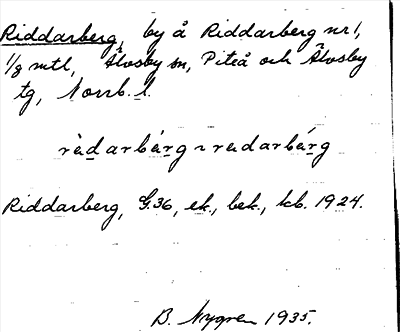 Riddarberg, by å Riddarberg nr 1,
1/8 mtl, Älvsby sn, Piteå och Älvsby
tg, Norrb. l.
Riddarberg, G.36, ek., bek., kb. 1924.
B. Nygren 1935.